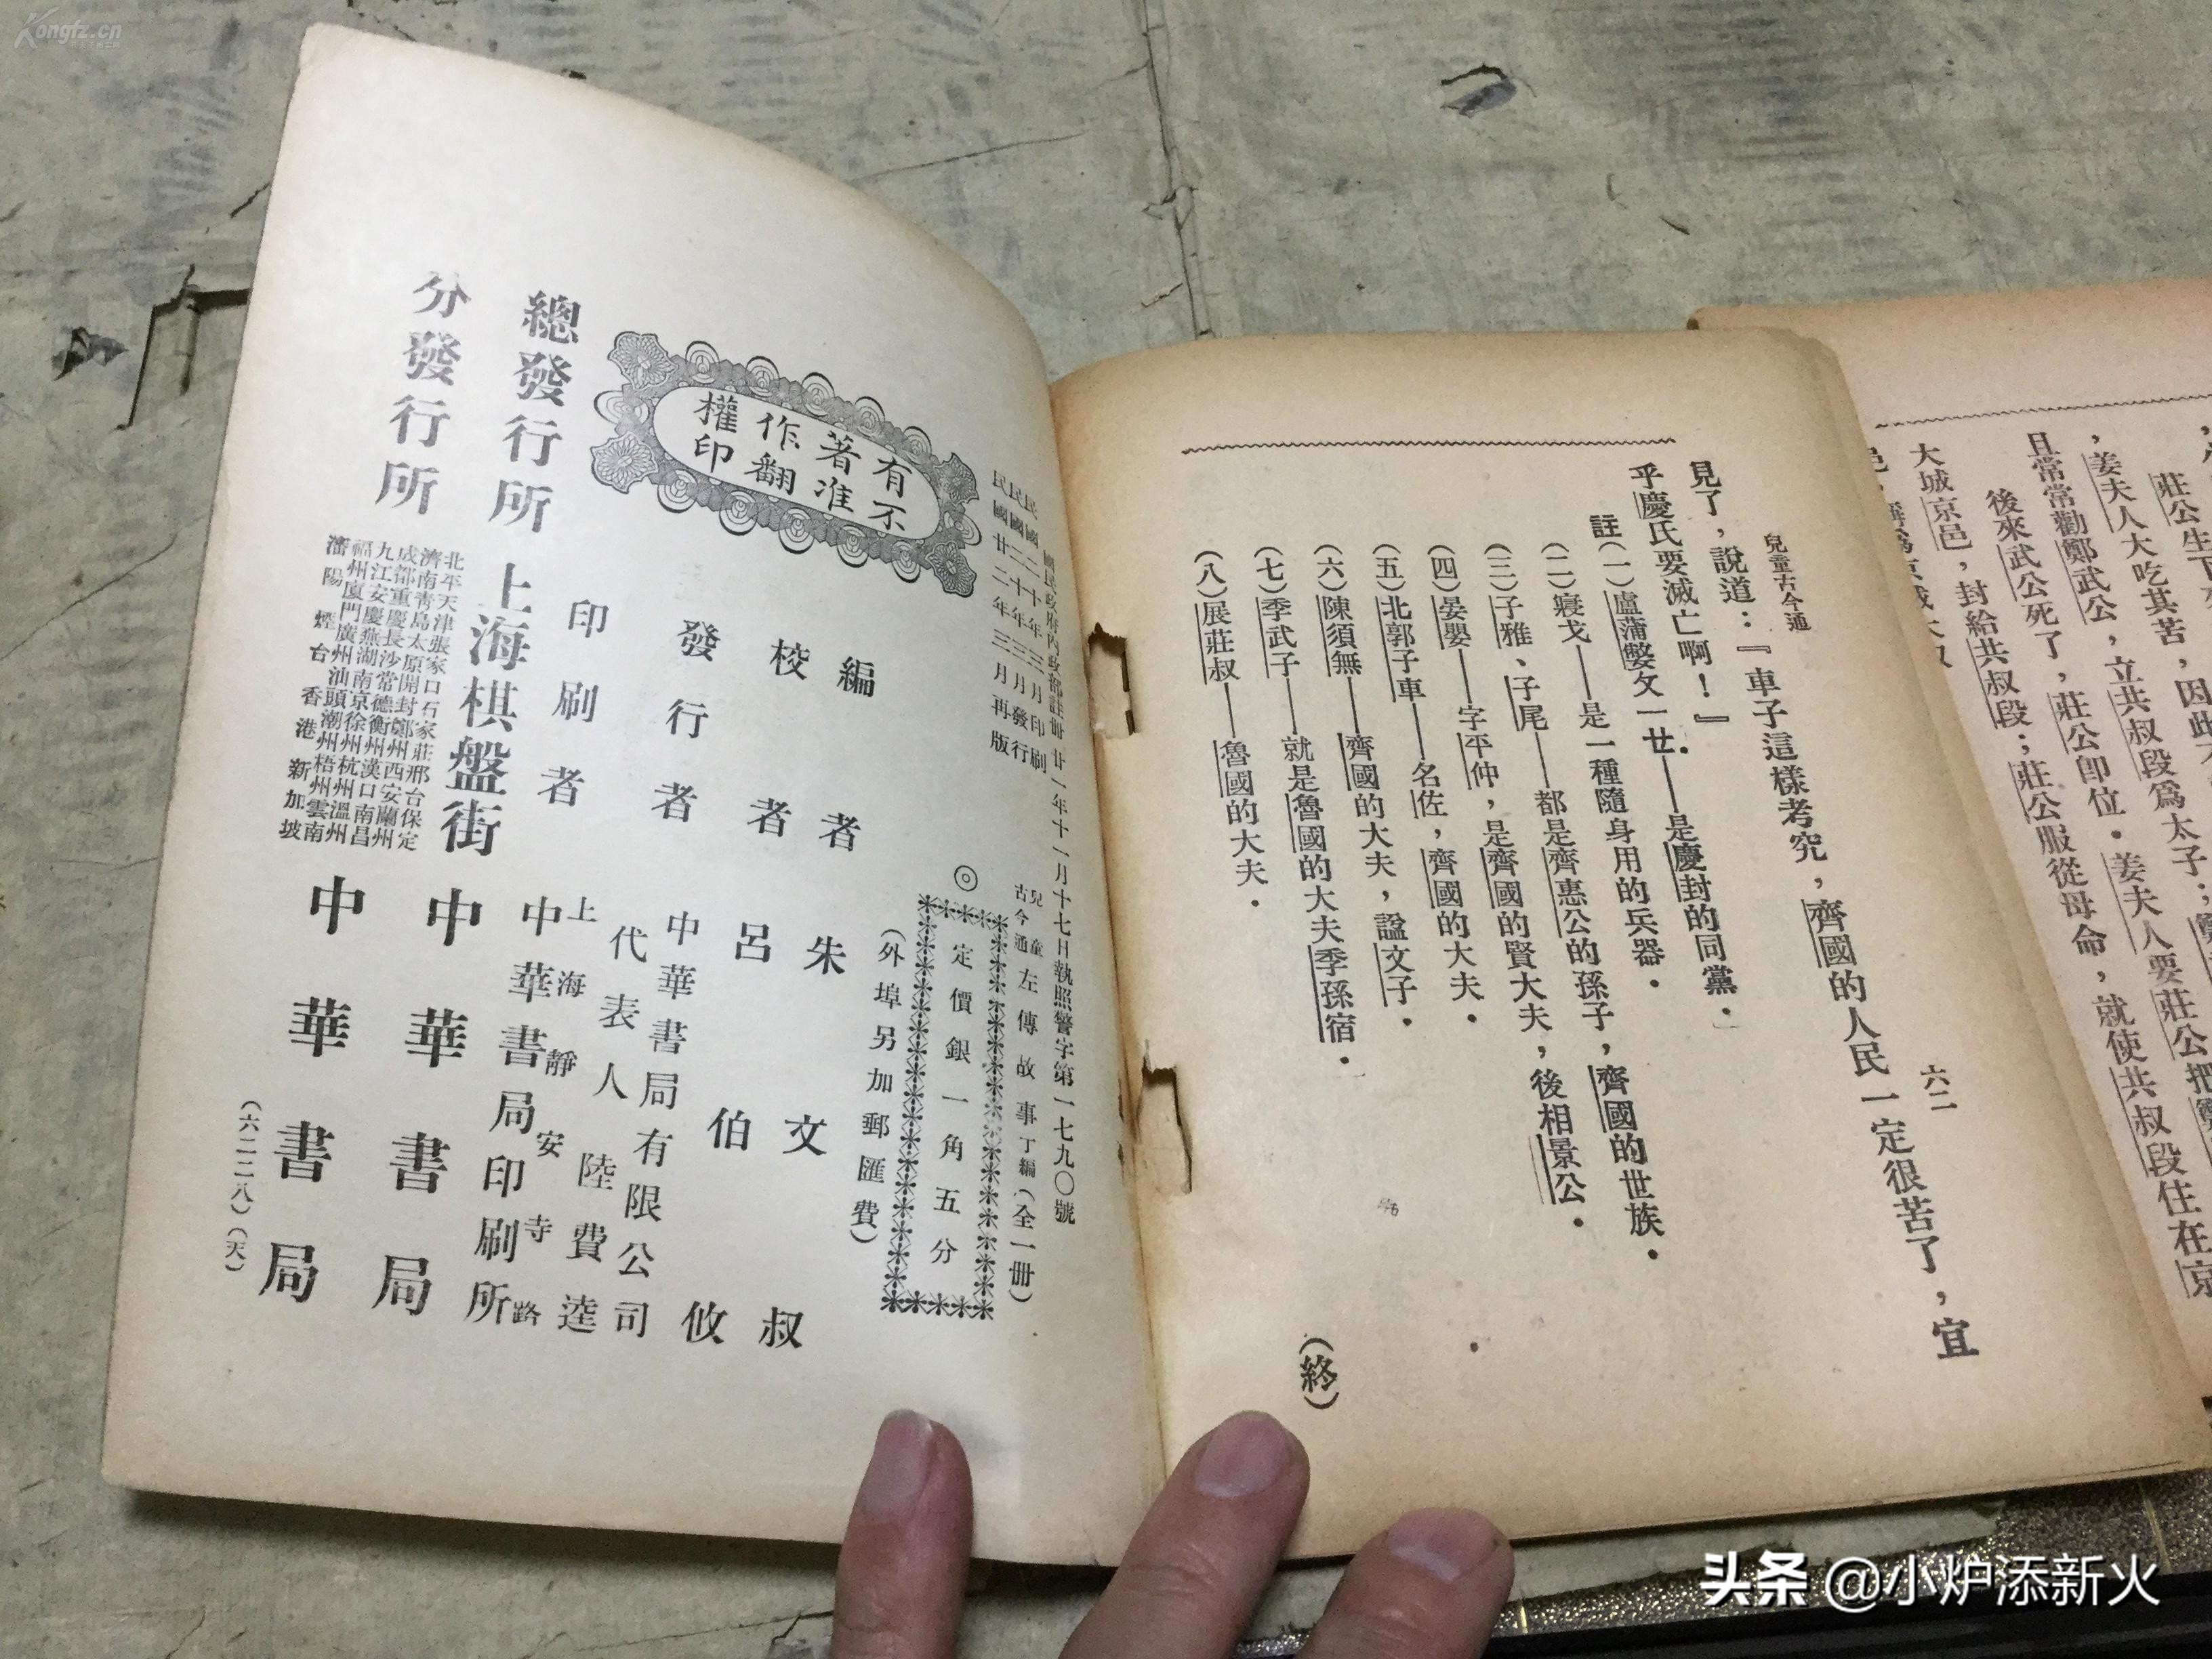 Kongfz.cn
大城京邑，封給共叔段；莊公服從母命，就使共叔段住在京
後來武公死了，莊公卽位．姜夫人要莊公把
且常常勸鄭武公，立共叔段爲太子；
，姜夫人大吃其苦，因此
兒童古今通
六二
見了，說道：『車子這樣考究，齊國的人民一定很苦了，宜
乎慶氏要滅亡啊！』
註（一）盧蒲嫳——是慶封的同黨．
（二）寢戈——是一種隨身用的兵器．
（三）子雅、子尾——都是齊惠公的孫子，齊國的世族．
（四）晏嬰——字平仲，是齊國的賢大夫，後相景公．
（五）北郭子車——名佐，齊國的大夫．
（六）陳須無——齊國的大夫，諡文子．
（七）季武子——就是魯國的大夫季孫宿．
（八）展莊叔——魯國的大夫．
（終）
國民政府內政部註冊 廿一年十一月十七日執照警字第一七九〇號
民國二十年三月印刷
民國二十年三月發行
民國廿二年三月再版
兒童古今通 左傳故事丁編（全一冊）
◎
定價銀一角五分
（外埠另加郵匯費）
有著作權
不准翻印
編者 朱文叔
校者 呂伯攸
發行者 中華書局有限公司
代表人 陸費逵
印刷者 上海靜安寺路
中華書局印刷所
總發行所 上海棋盤街 中華書局
分發行所 中華書局
北平天津張家口石家莊邢台保定
濟南青島太原開封鄭州西安蘭州
成都重慶長沙常德衡州漢口南昌
九江安慶蕪湖南京徐州杭州溫州
福州廈門廣州汕頭潮州梧州雲南
瀋陽煙台香港新加坡
（六二二八）（天）
头条 @小炉添新火